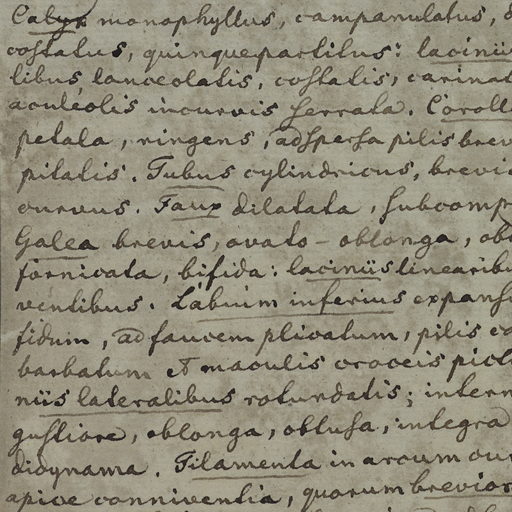 Calyx monophyllus, campanulatus,
costatus, quinquepartitus: lacinii
libus lanceolatis, costatis, carinat
aculeolis incurvis serrata. Coroll
petala, ringens, adspersa pilis brev
pitatis. Tubus cylindricus, brevi
curvus. Faux dilatata, subcomp
Galea brevis, ovato-oblonga, ob
fornicata, bifida: laciniis linearibu
ventibus. Labium inferius expans
fidum, ad faucem plicatum, pilis c
barbatum et maculis croceis pict
niis lateralibus rotundatis; interm
gustiore, oblonga, obtusa, integra
didynama. Filamenta in arcum cur
apice conniventia, quorum brevior